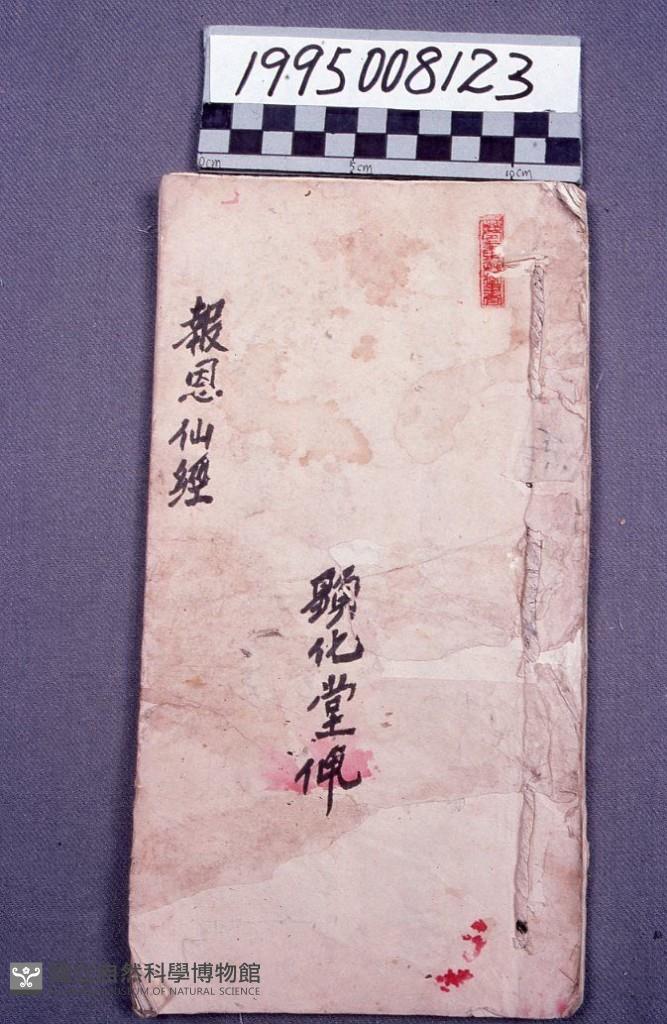 1995008123
0cm 5cm 10cm
報恩仙經
顯化堂佩
國立自然科學博物館
NATIONAL MUSEUM OF NATURAL SCIENCE